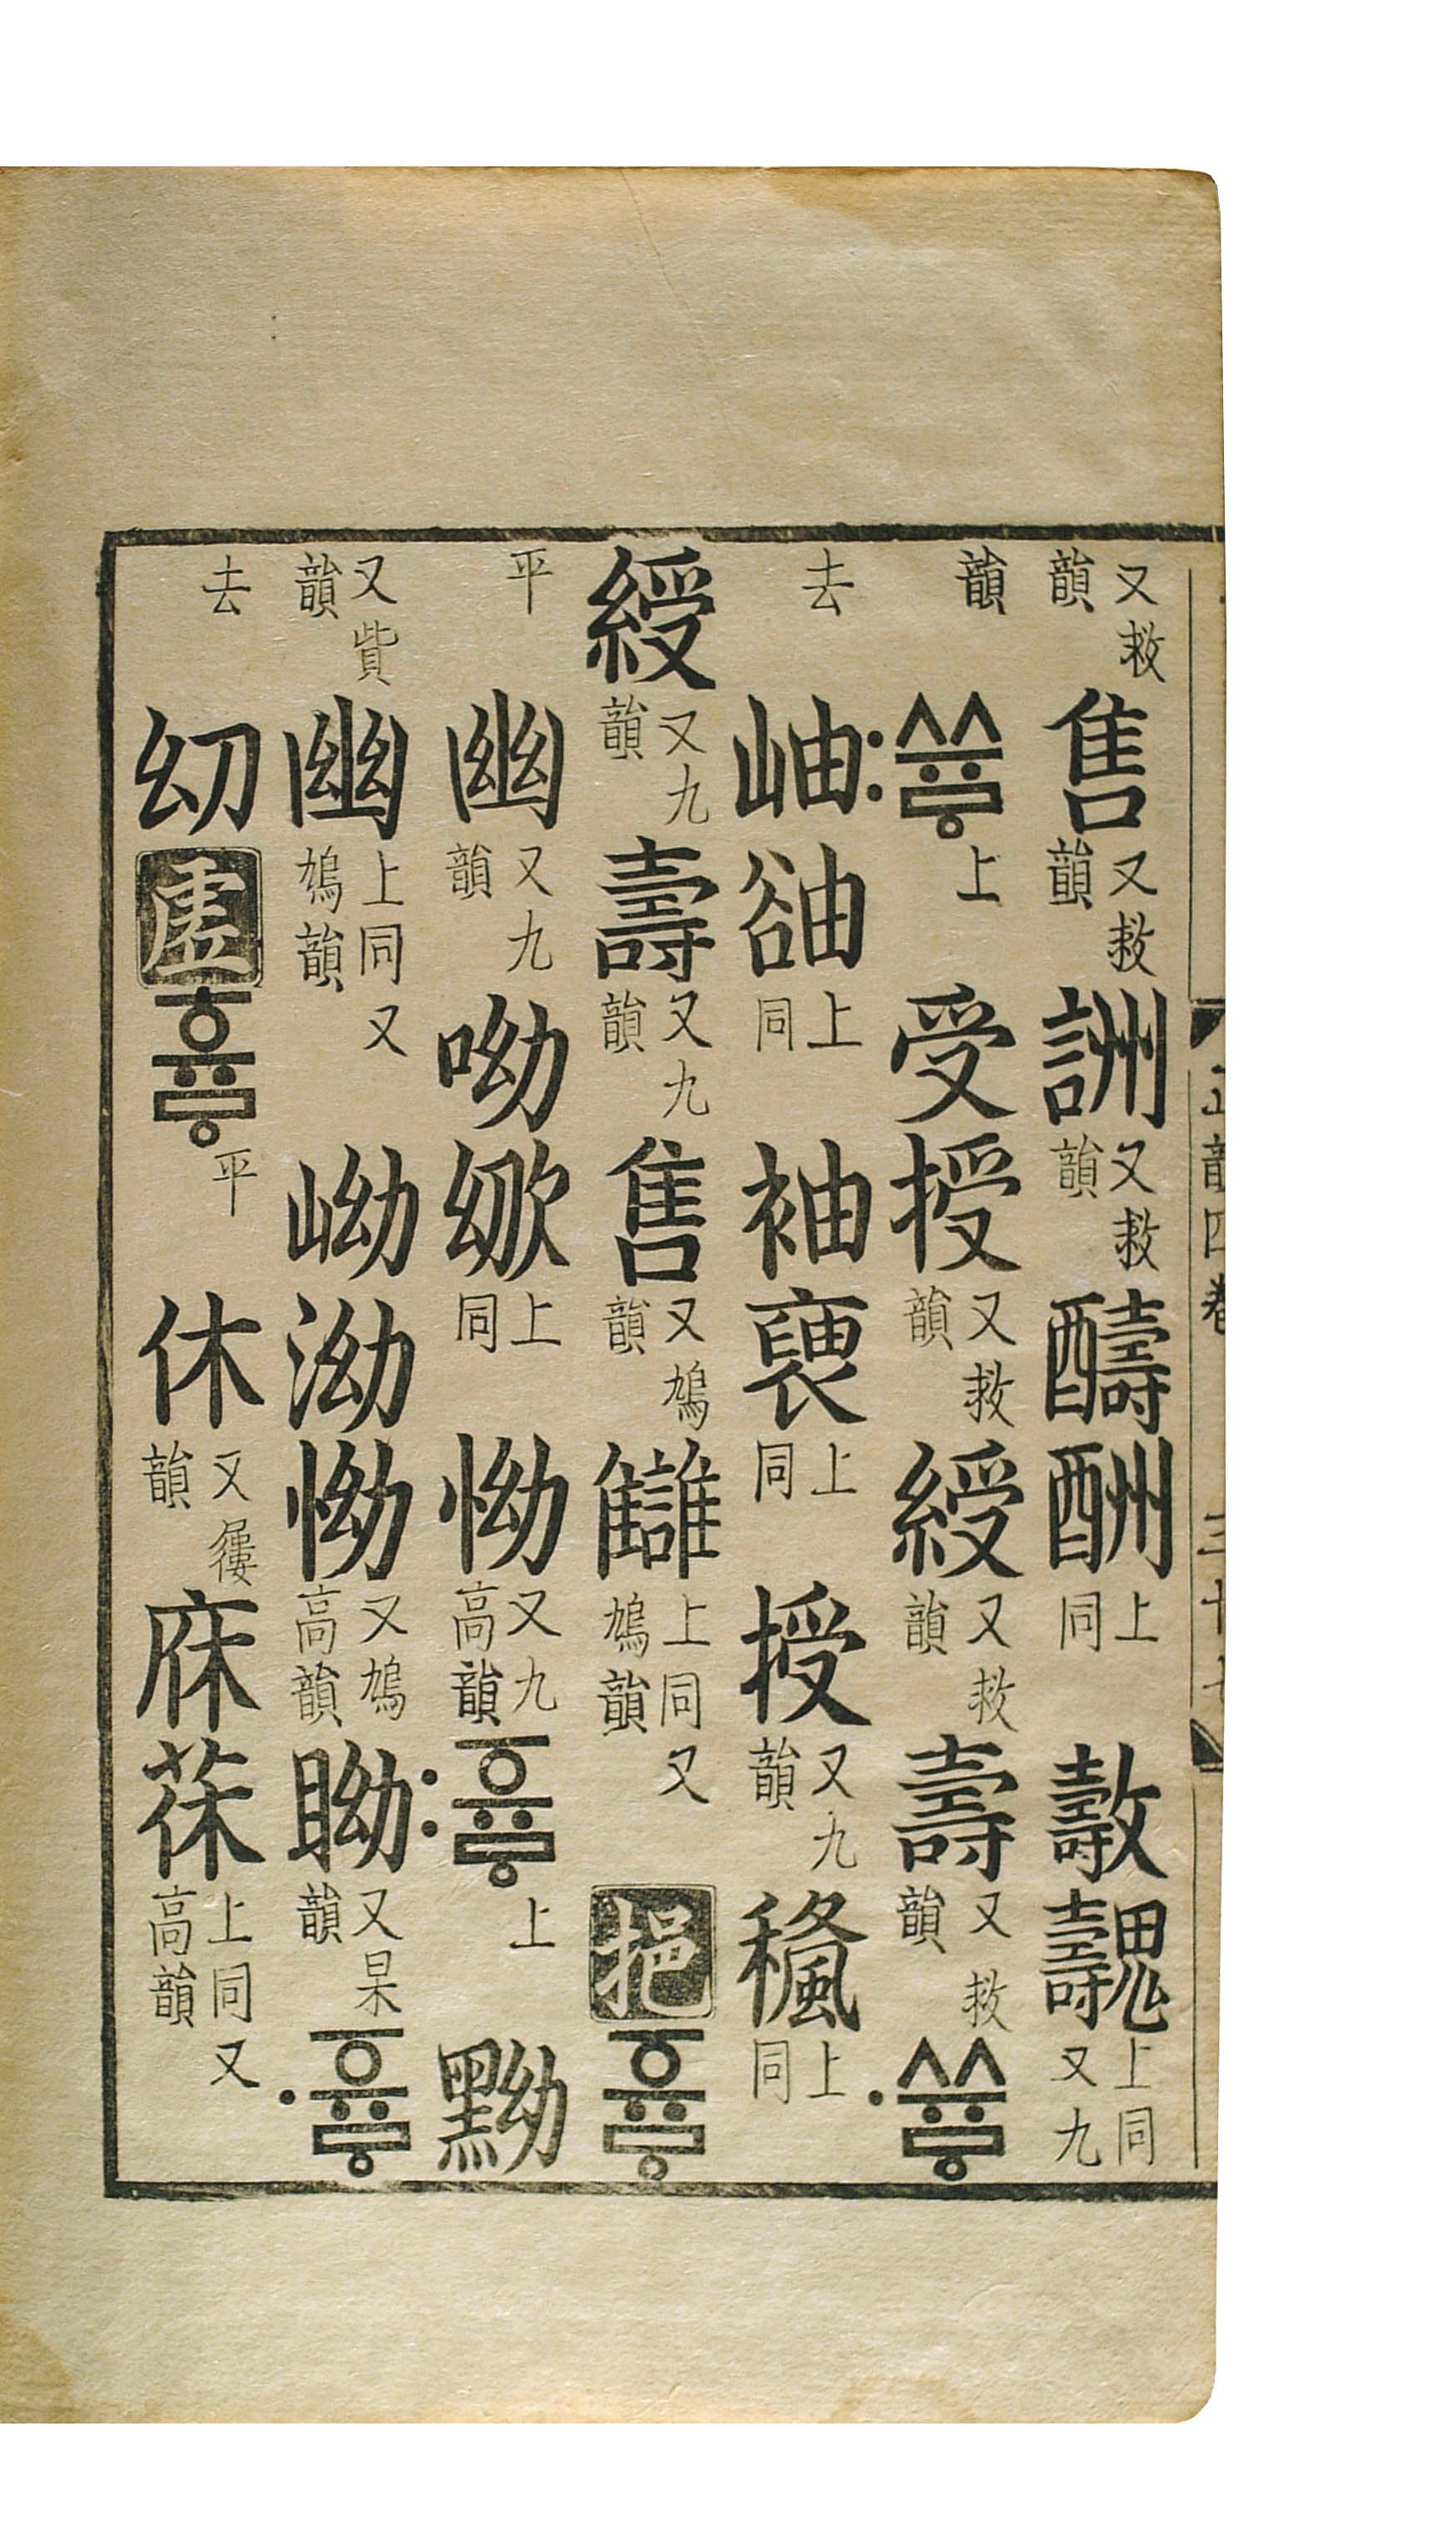 又救韻售又救韻詶又救韻醻酬上同魗上同又九
韻〯ᄿᅲᇢ上受授又救韻綬又救韻壽又救韻〮ᄿᅲᇢ
去岫上同袖褎上同授又九韻上同
綬又九韻壽又九韻售又鳩韻讎上同又鳩韻挹ᅙᅲᇢ
平幽又九韻呦𣢜上同怮又九高韻〯ᅙᅲᇢ上黝
又貲韻幽上同又鳩韻岰泑怮又鳩高韻眑又杲韻〮ᅙᅲᇢ
去幼虛휴ᇢ平休又韻庥茠上同又高韻